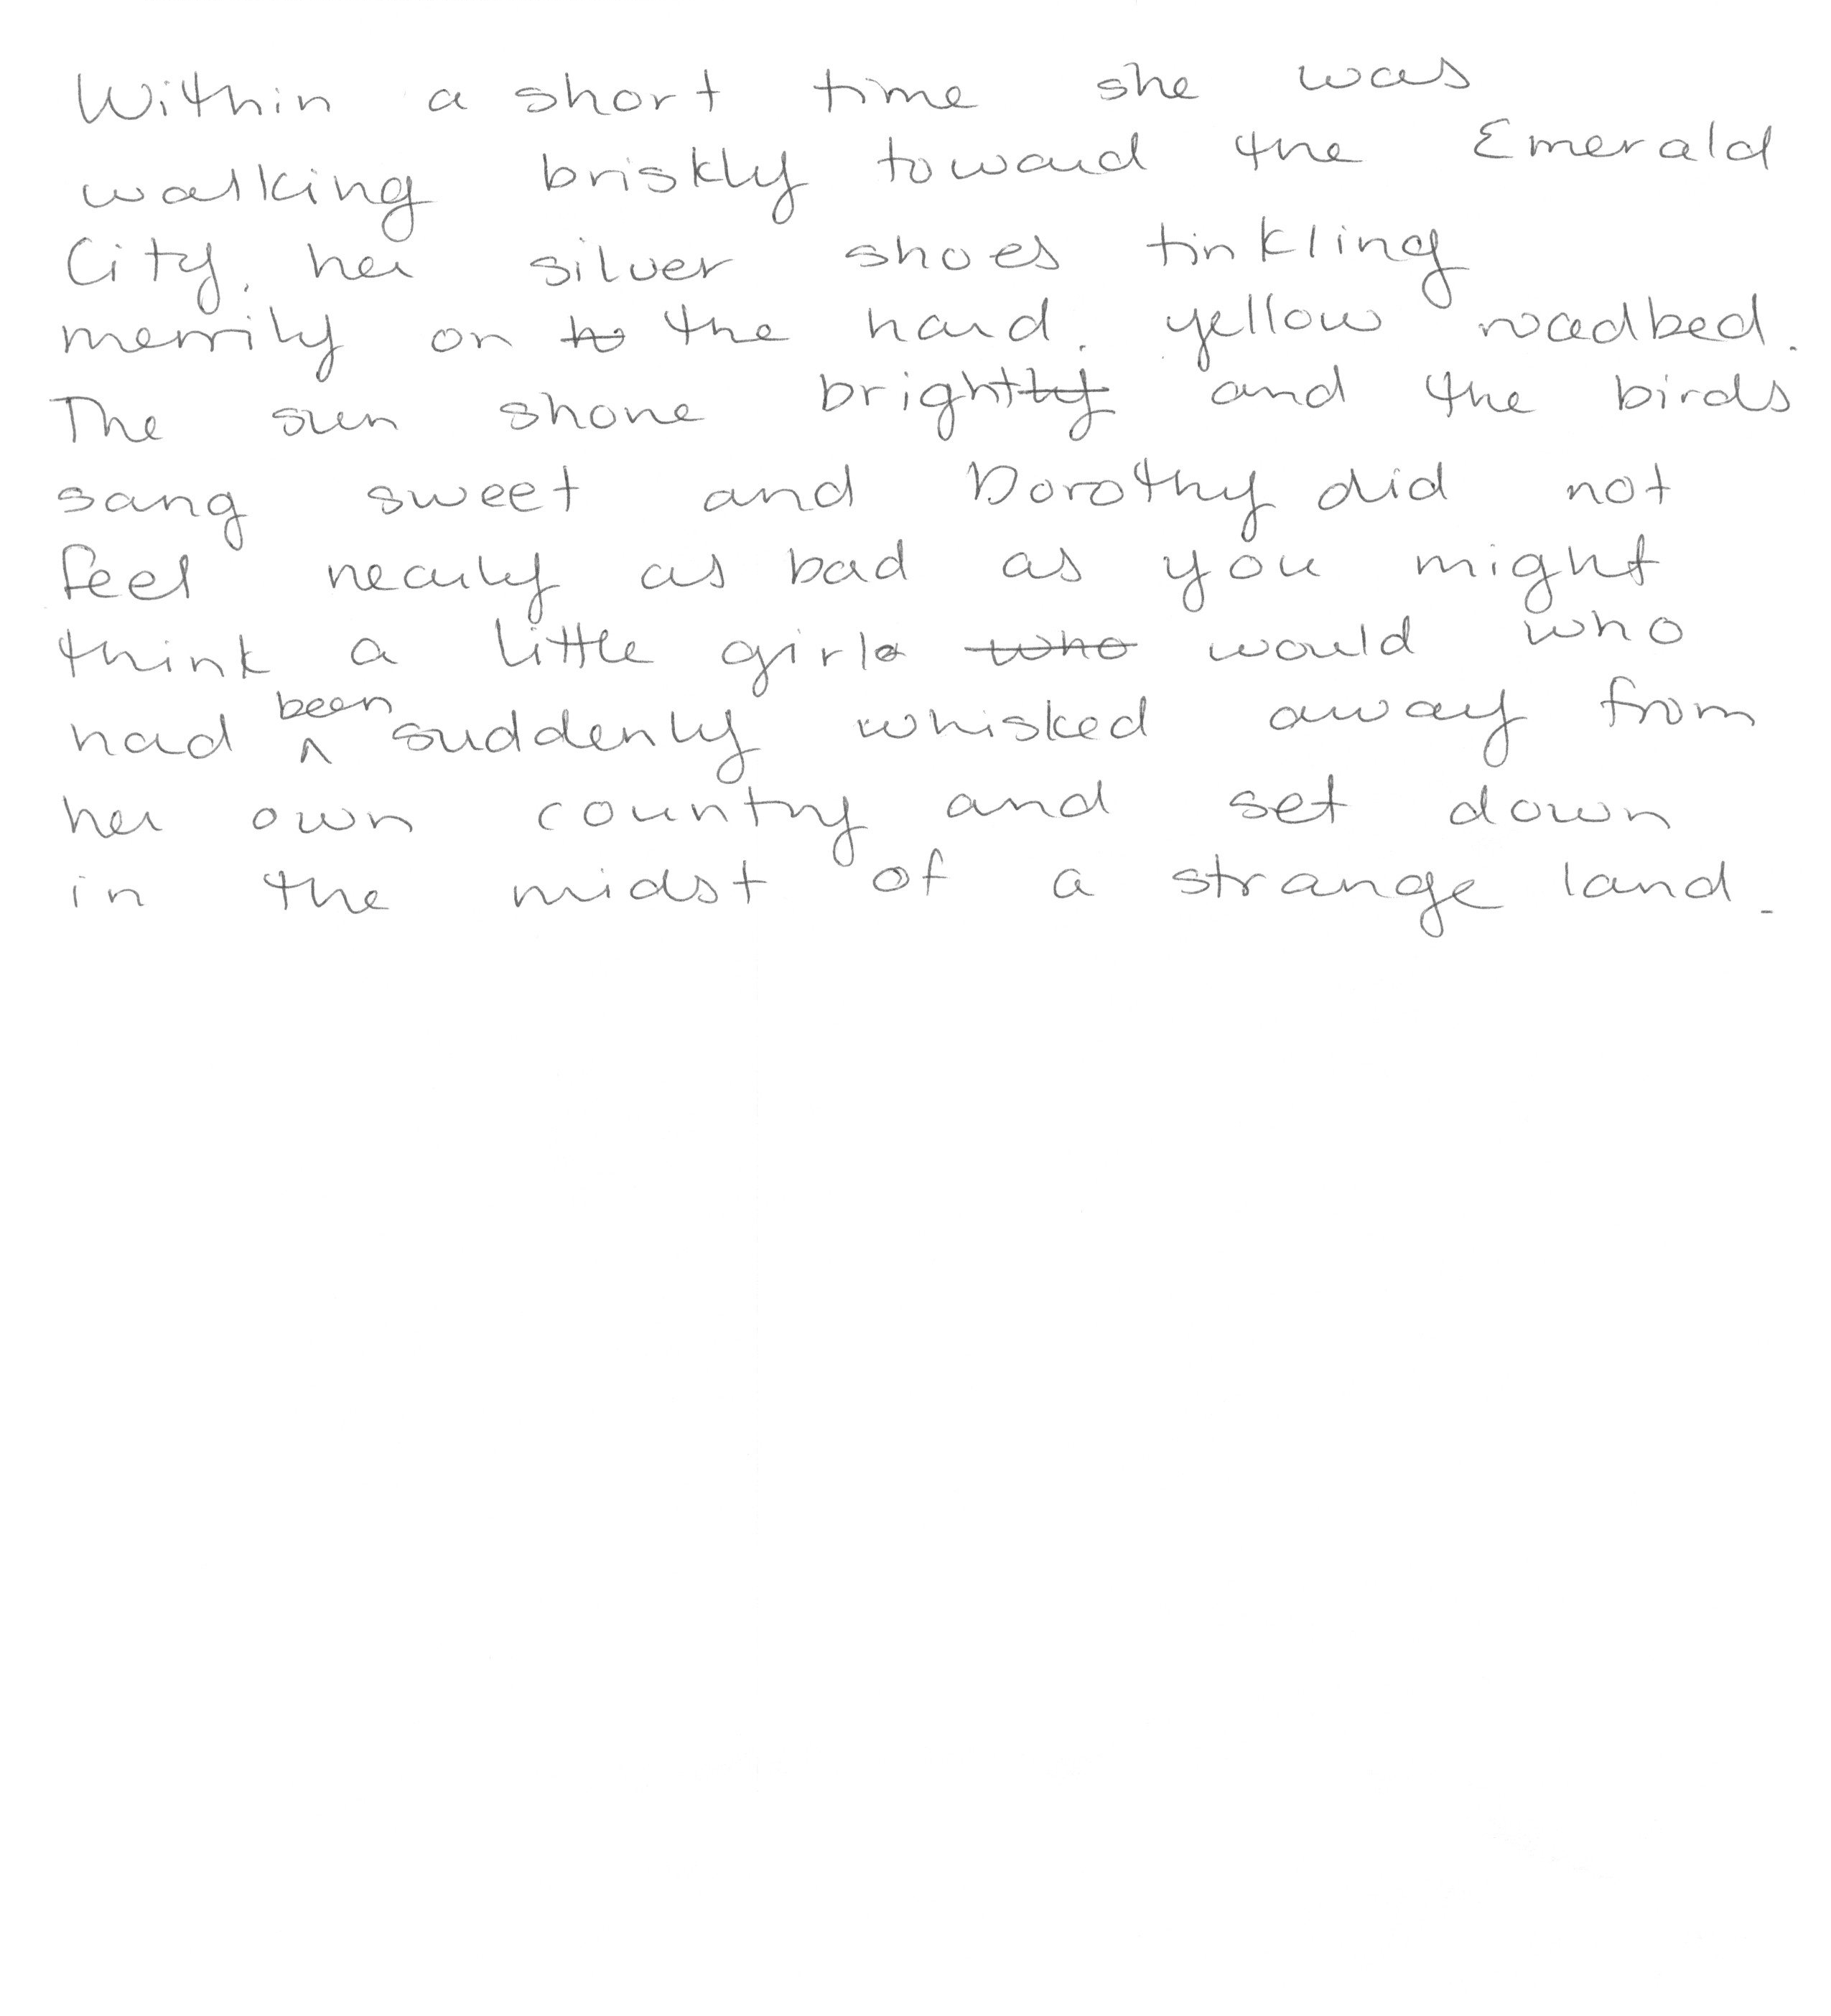 Within a short time she was
walking briskly toward the Emerald
City, her silver shoes tinkling
merrily on the hard, yellow roadbed.
The sun shone bright and the birds
sang sweet and Dorothy did not
feel nearly as bad as you might
think a little girl would who
had been suddenly whisked away from
her own country and set down
in the midst of a strange land.